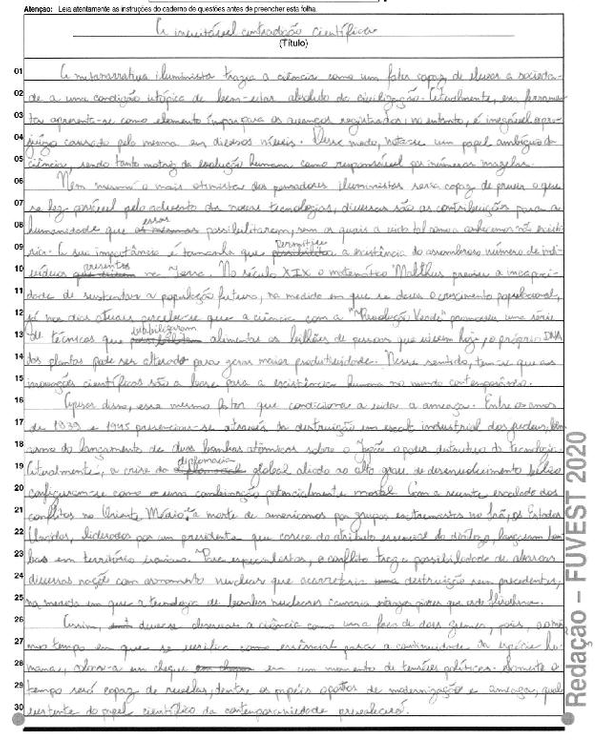 Atenção: Leia atentamente as instruções do caderno de questões antes de preencher esta folha.
A inevitável contradição científica
(Título)
01 A metanarrativa iluminista trazia a ciência como um fator capaz de elevar a socieda-
02 de a uma condição utópica de bem-estar absoluto da civilização. Atualmente, essa ferramen-
03 ta apresenta-se como elemento ímpar para os avanços registrados; no entanto, é inegável o pre-
04 juízo causado pelo mesmo em diversos níveis. Desse modo, nota-se um papel ambíguo da
05 ciência, sendo tanto motriz da evolução humana como responsável por inúmeras mazelas.
06 Nem mesmo o mais otimista dos pensadores iluministas seria capaz de prever o que
07 se fez possível pelo advento das novas tecnologias, diversas são as contribuições para a
08 humanidade que essas possibilitaram, sem os quais a vida tal como a conhecemos não existi-
09 ria. A sua importância é tamanha que permitiu a existência do assombroso número de indi-
10 víduos presentes na Terra. No século XIX o matemático Malthus previu a incapaci-
11 dade de sustentar a população futura, na medida em que se desse o crescimento populacional,
12 já nos dias atuais percebe-se que a ciência com a "Revolução Verde" promoveu uma série
13 de técnicas que viabilizaram alimentar os bilhões de pessoas que vivem hoje, o próprio DNA
14 das plantas pode ser alterado para gerar maior produtividade. Nesse sentido, tem-se que as
15 inovações científicas são a base para a existência humana no mundo contemporâneo.
16 Apesar disso, esse mesmo fator que condiciona a vida a ameaça. Entre os anos
17 de 1939 e 1945 presenciou-se através da destruição em escala industrial dos judeus, bem
18 como do lançamento de duas bombas atômicas sobre o Japão o poder destrutivo da tecnologia.
19 Atualmente, a crise da diplomacia global aliada ao alto grau de desenvolvimento bélico
20 configuram-se como uma combinação potencialmente mortal. Com a recente escalada dos
21 conflitos no Oriente Médio a morte de americanos por grupos extremistas no Irã, os Estados
22 Unidos, liderados por um presidente que carece do atributo essencial do diálogo, lançaram bom-
23 bas em território iraniano. Para especialistas, o conflito traz a possibilidade de abarcar
24 diversas nações com armamento nuclear que ocasionaria destruição sem precedentes,
25 na medida em que a tecnologia de bombas nucleares
26 Assim, deve-se observar a ciência como uma faca de dois gumes, pois, ao mes-
27 mo tempo em que se verifica como essencial para a continuidade da espécie hu-
28 mana, coloca-a em cheque em um momento de tensões políticas. Somente o
29 tempo será capaz de revelar, dentre os papéis opostos de modernização e ameaça, qual
30 vertente do papel científico da contemporaneidade prevalecerá.
Redação – FUVEST 2020